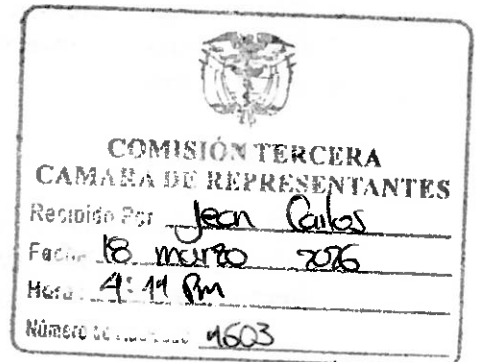 COMISIÓN TERCERA
CAMARA DE REPRESENTANTES
Recibido Por Jean Carlos
Fecha 18 marzo 2026
Hora 4:11 Pm
Número de 1603